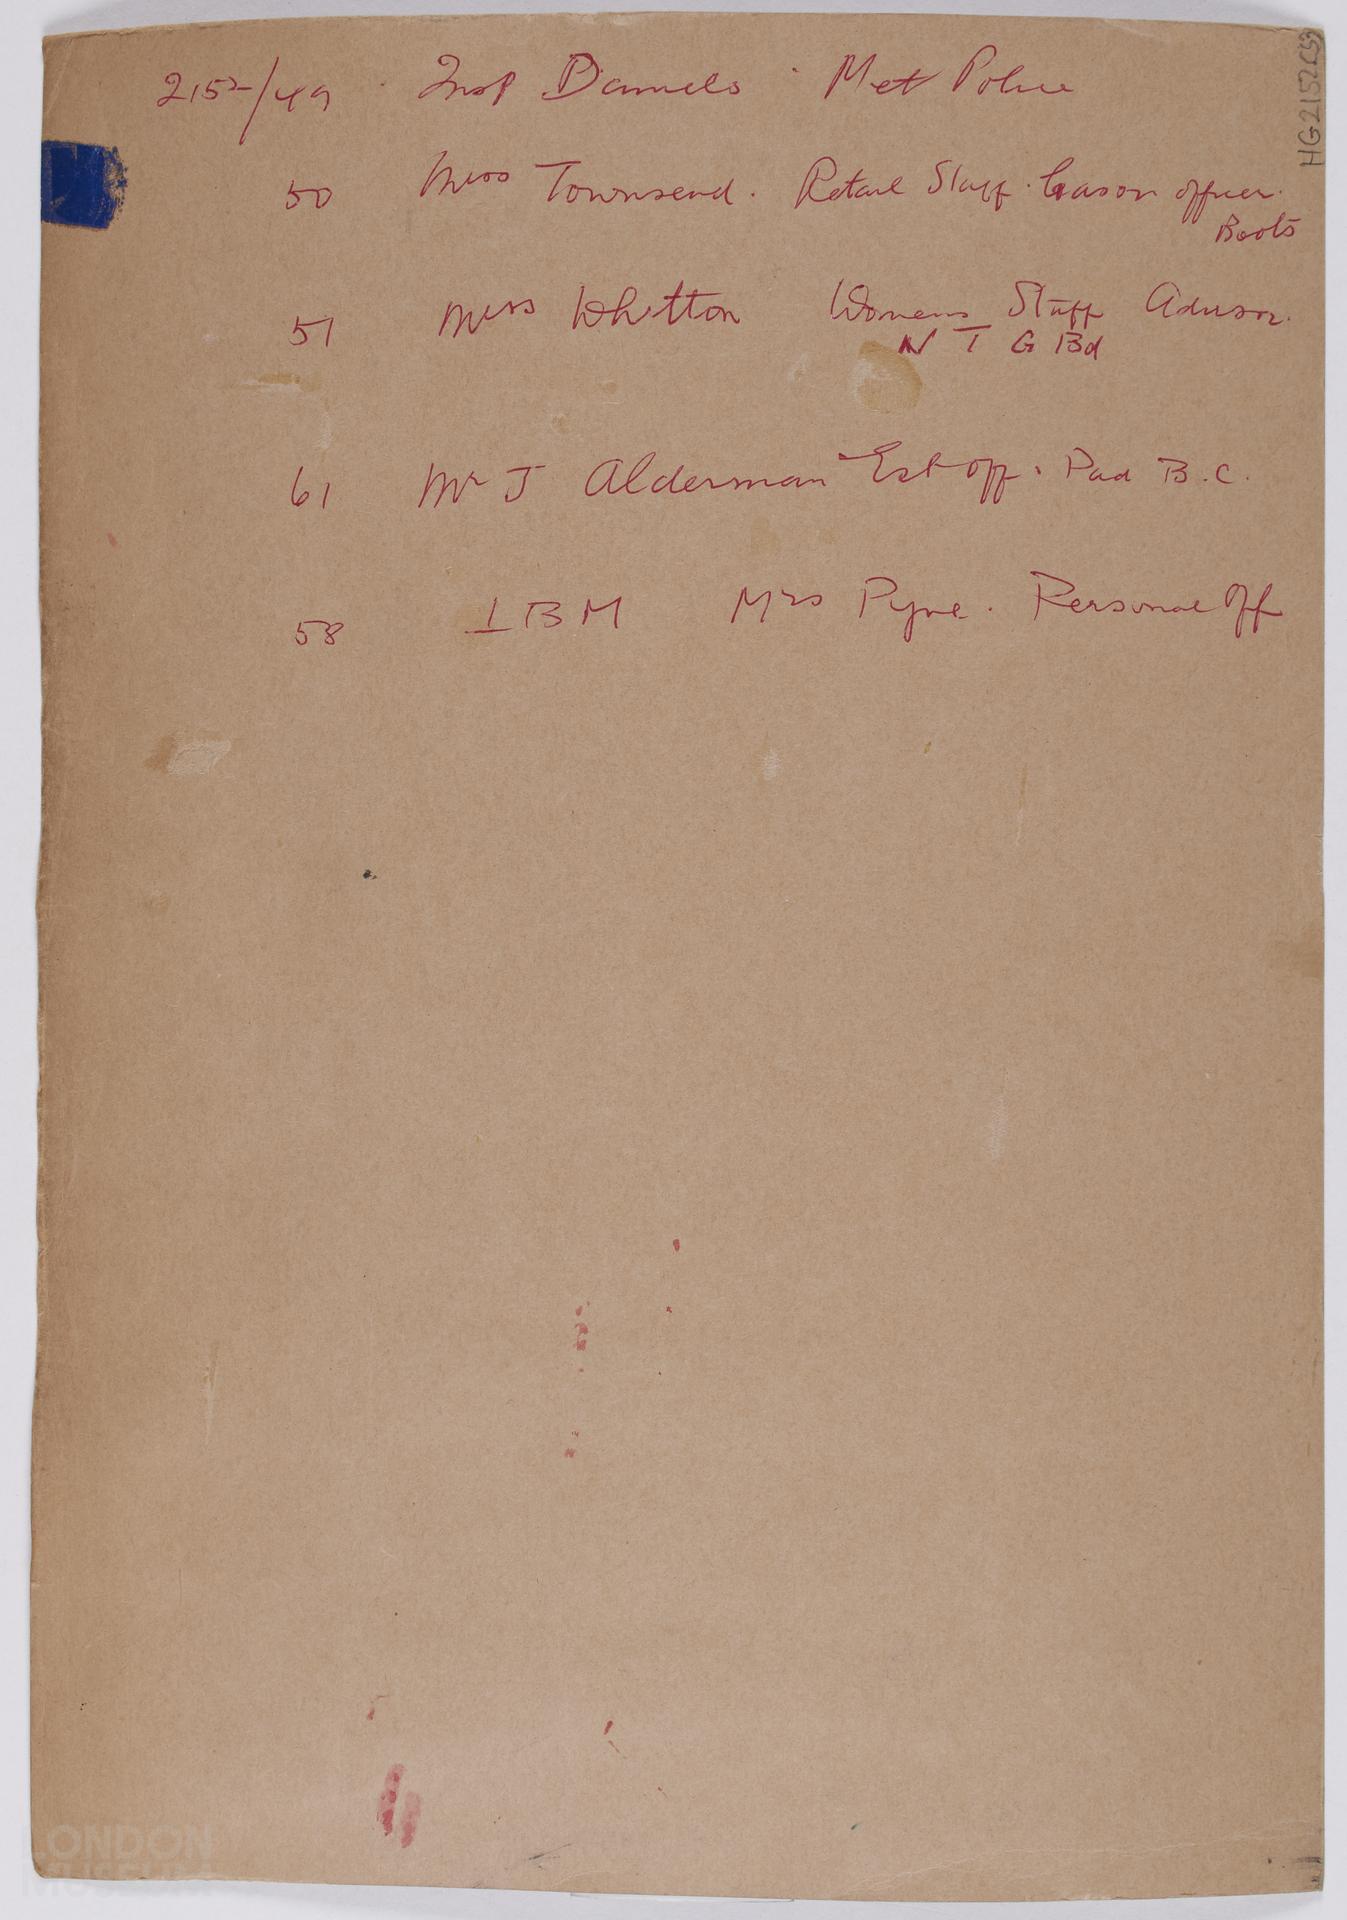 2152/49 Insp Daniels Met Police
50 Miss Townsend. Retail Staff Liason officer.
Boots
51 Miss Whitton Womens Staff Advisor.
N T G Bd
61 Mr J Alderman Est off. Pad B.C.
58 IBM Mrs Pyne. Personal Off
HG2152C53
LONDON
MUSEUM